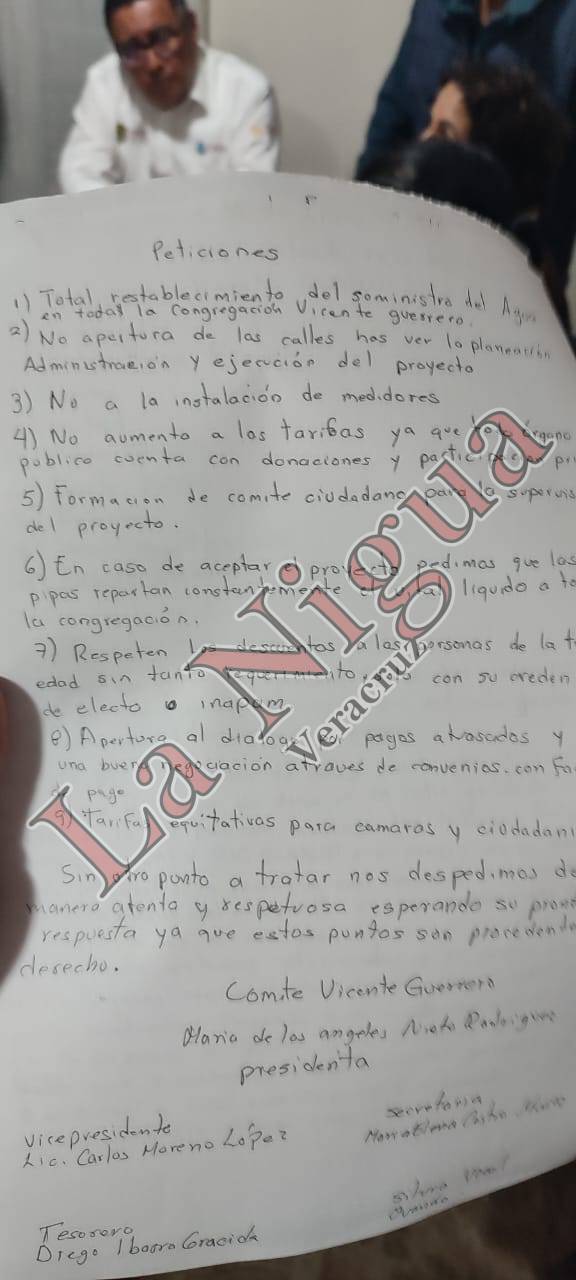 Peticiones
1) Total restablecimiento del soministro del Agua
en todas la Congregación Vicente guerrero.
2) No apertura de las calles has ver lo planeación
Administración y ejecución del proyecto
3) No a la instalación de medidores
4) No aumento a las tarifas ya que todo órgano
público cuenta con donaciones y
5) Formacion de comite ciudadano para la supervis
del proyecto.
6) En caso de aceptar el proyecto pedimos que las
pipas repartan constantemente el vital liquido a to
la congregación.
7) Respeten los descuentos a las personas de la t
edad sin tanto requerimiento, solo con su creden
de electo o inapam
8) Apertura al dialogo por pagos atrasados y
una buena negociación atraves de convenios. con fa
pago
9) Tarifas equitativas para camaras y ciudadan
Sin otro punto a tratar nos despedimos de
manera atenta y respetuosa esperando su pron
respuesta ya que estos puntos son
derecho.
Comite Vicente Guerrero
Maria de los angeles Nieto Rodriguez
presidenta
secretaria
vicepresidente
Lic. Carlos Moreno López
Tesorero
Diego Ibarra Gracida
La Nigua
Veracruz